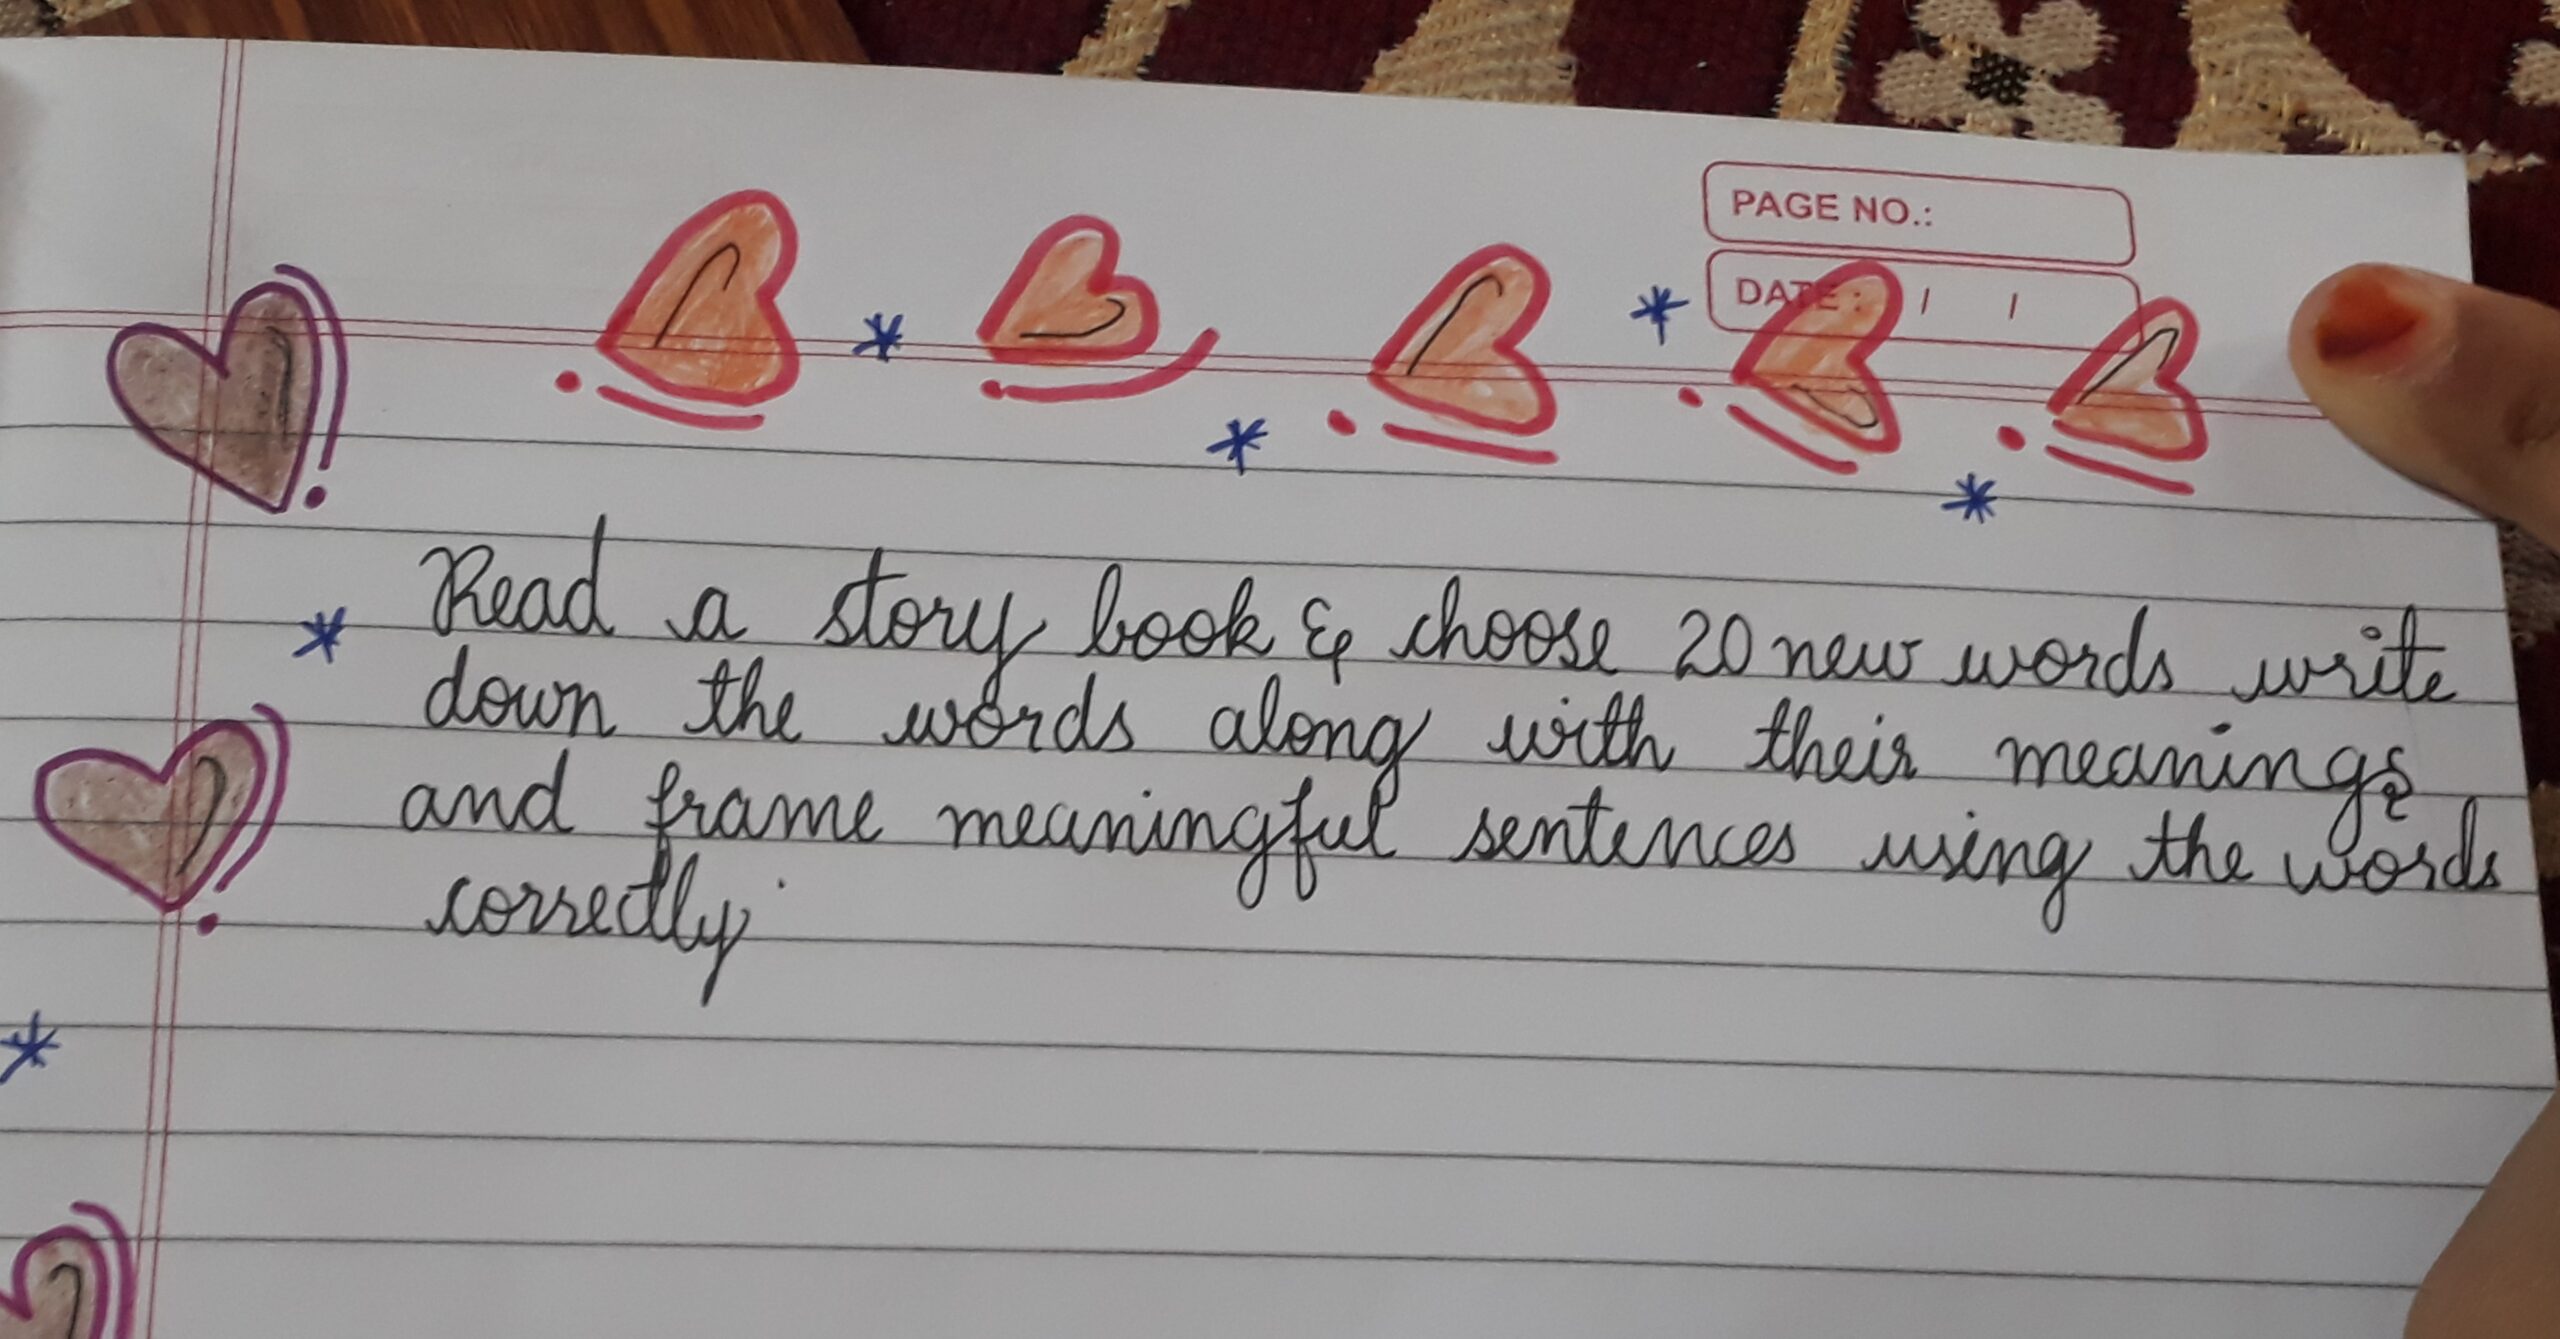 PAGE NO.:
DATE: / /
Read a story book & choose 20 new words write
down the words along with their meanings
and frame meaningful sentences using the words
correctly.